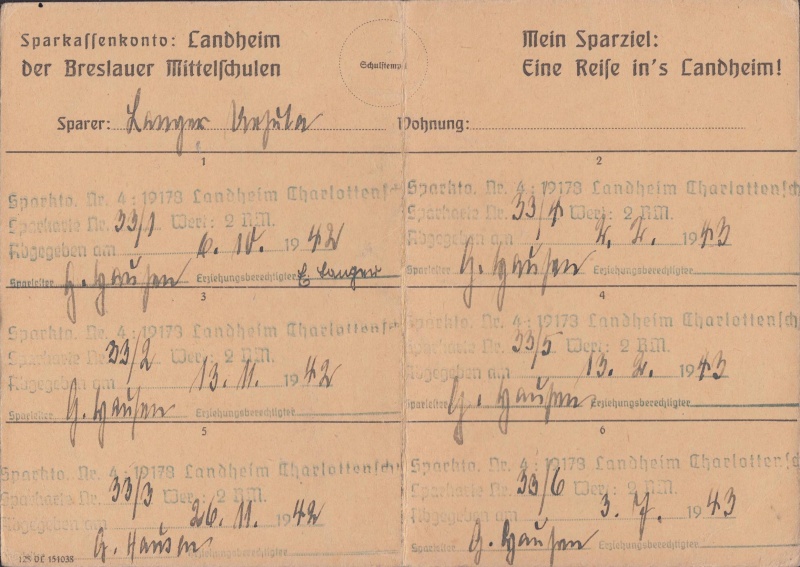 Sparkassenkonto: Landheim
der Breslauer Mittelschulen
Schulstempel
Mein Sparziel:
Eine Reise in's Landheim!
Sparer: Langer Ursula
Wohnung:
1
Sparkto. Nr. 4 : 19173 Landheim Charlottensch
Sparkarte Nr. 33/1 Wert: 2 RM.
Abgegeben am 6. 10. 1942
Sparleiter G. Hausen Erziehungsberechtigter E. Langer
2
Sparkto. Nr. 4 : 19173 Landheim Charlottensch
Sparkarte Nr. 33/4 Wert: 2 RM.
Abgegeben am 2. 2. 1943
Sparleiter G. Hausen Erziehungsberechtigter
3
Sparkto. Nr. 4 : 19173 Landheim Charlottensch
Sparkarte Nr. 33/2 Wert: 2 RM.
Abgegeben am 13. 11. 1942
Sparleiter G. Hausen Erziehungsberechtigter
4
Sparkto. Nr. 4 : 19173 Landheim Charlottensch
Sparkarte Nr. 33/5 Wert: 2 RM.
Abgegeben am 13. 2. 1943
Sparleiter G. Hausen Erziehungsberechtigter
5
Sparkto. Nr. 4 : 19173 Landheim Charlottensch
Sparkarte Nr. 33/3 Wert: 2 RM.
Abgegeben am 26. 11. 1942
G. Hausen Erziehungsberechtigter
6
Sparkto. Nr. 4 : 19173 Landheim Charlottensch
Sparkarte Nr. 33/6 Wert: 2 RM.
Abgegeben am 3. 7. 1943
Sparleiter G. Hausen Erziehungsberechtigter
125 DE 151038